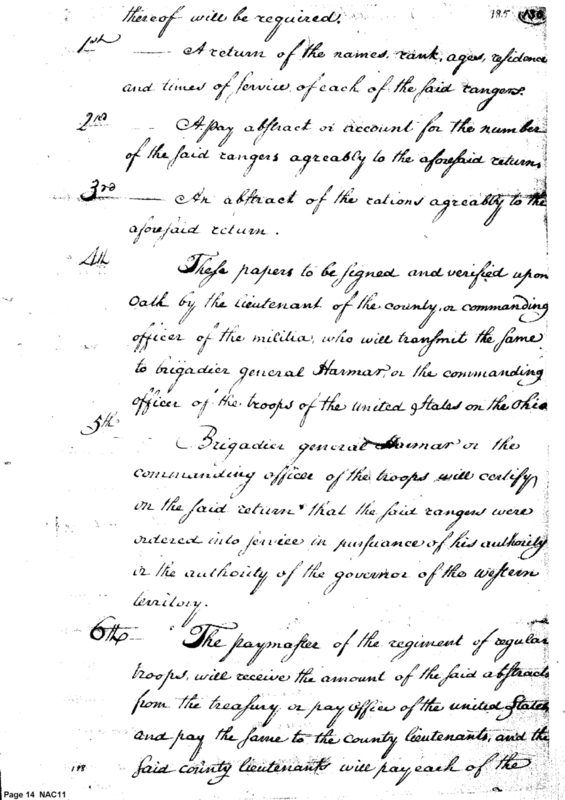 thereof will be required. 185 130
1st A return of the names, rank, ages, residence
and times of service, of each of the said rangers.
2nd A pay abstract or account for the number
of the said rangers agreably to the aforesaid return
3rd An abstract of the rations agreably to the
aforesaid return.
4th These papers to be signed and verified upon
Oath by the lieutenant of the county, or commanding
officer of the militia, who will transmit the same
to brigadier general Harmar, or the commanding
officer of the troops of the united States on the Ohio
5th Brigadier general Harmar or the
commanding officer of the troops will certify
on the said return that the said rangers were
ordered into service in pursuance of his authority
or the authority of the governor of the western
territory.
6th The paymaster of the regiment of regular
troops, will receive the amount of the said abstracts
from the treasury or pay office of the united States
and pay the same to the county lieutenants, and the
said county lieutenants will pay each of the
Page 14 NAC11